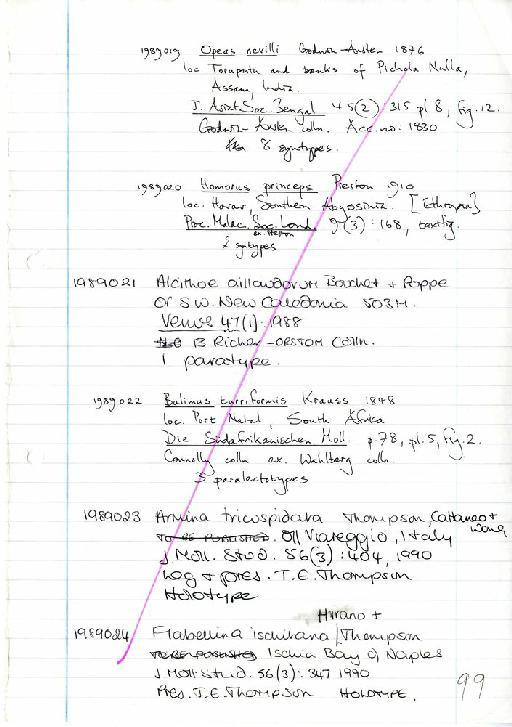 1989019 Opeas nevilli Godwin-Austen 1876
loc Torupnia and banks of Pichola Nulla,
Assam, India.
J. Asiat. Soc. Bengal 45(2) 315 pl 8, fig. 12.
Godwin-Austen colln. Acc. no. 1830
8 syntypes.
1989020 Homorus princeps Preston 1910
loc. Harar, Southern Abyssinia. [Ethiopia]
Proc. Malac. Soc. Lond. 9(3): 168, textfig.
ex. Preston
2 syntypes
1989021 Alcithoe aillaudorum Bouchet + Poppe
Off SW. New Caledonia 503M.
Venus 47(1). 1988
B Richer - ORSTOM Colln.
1 paratype.
1989022 Bulimus turriformis Krauss 1848
loc. Port Natal, South Africa
Die Südafrikanischen Moll. p.78, pl. 5, fig. 2.
Connolly colln ex. Wahlberg colln.
3 paralectotypes
1989023 Armina tricuspidata Thompson, Cattaneo +
Wong
Off Viareggio, Italy
J Moll. Stud. 56(3): 404, 1990
Leg + pres. T.E. Thompson
Holotype
Hirano +
1989024 Flabellina ischitana Thompson
Ischia Bay of Naples
J Moll Stud. 56(3): 347 1990
Pres. T.E. Thompson HOLOTYPE.
99